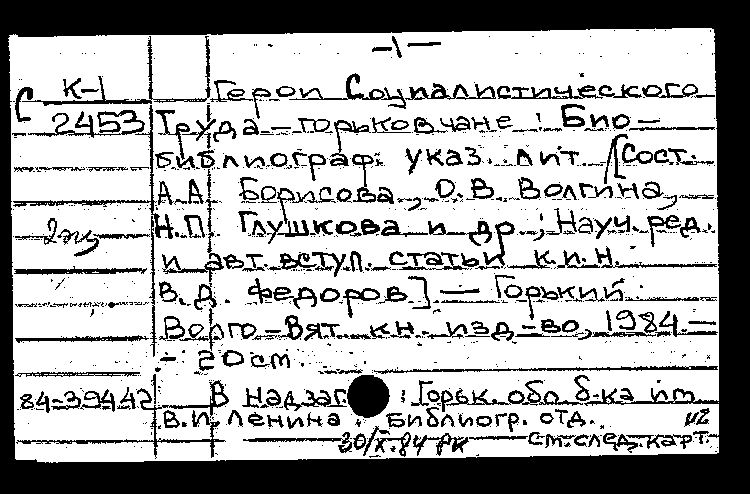 -1-
К-1 Герои Социалистического
С 2453 Труда - горьковчане : Био-
библиограф. указ. лит. / [Сост.
А.А. Борисова, О.В. Волгина,
2экз Н.П. Глушкова и др.; Науч. ред.
и авт. вступ. статьи к.и.н.
В.Д. Федоров] - Горький :
Волго-Вят. кн. изд-во, 1984. -
- 20 см.
84-39442 В надзаг. : Горьк. обл. б-ка им.
В.И. Ленина. Библиогр. отд.
30/X.84 РК См. след. карт.